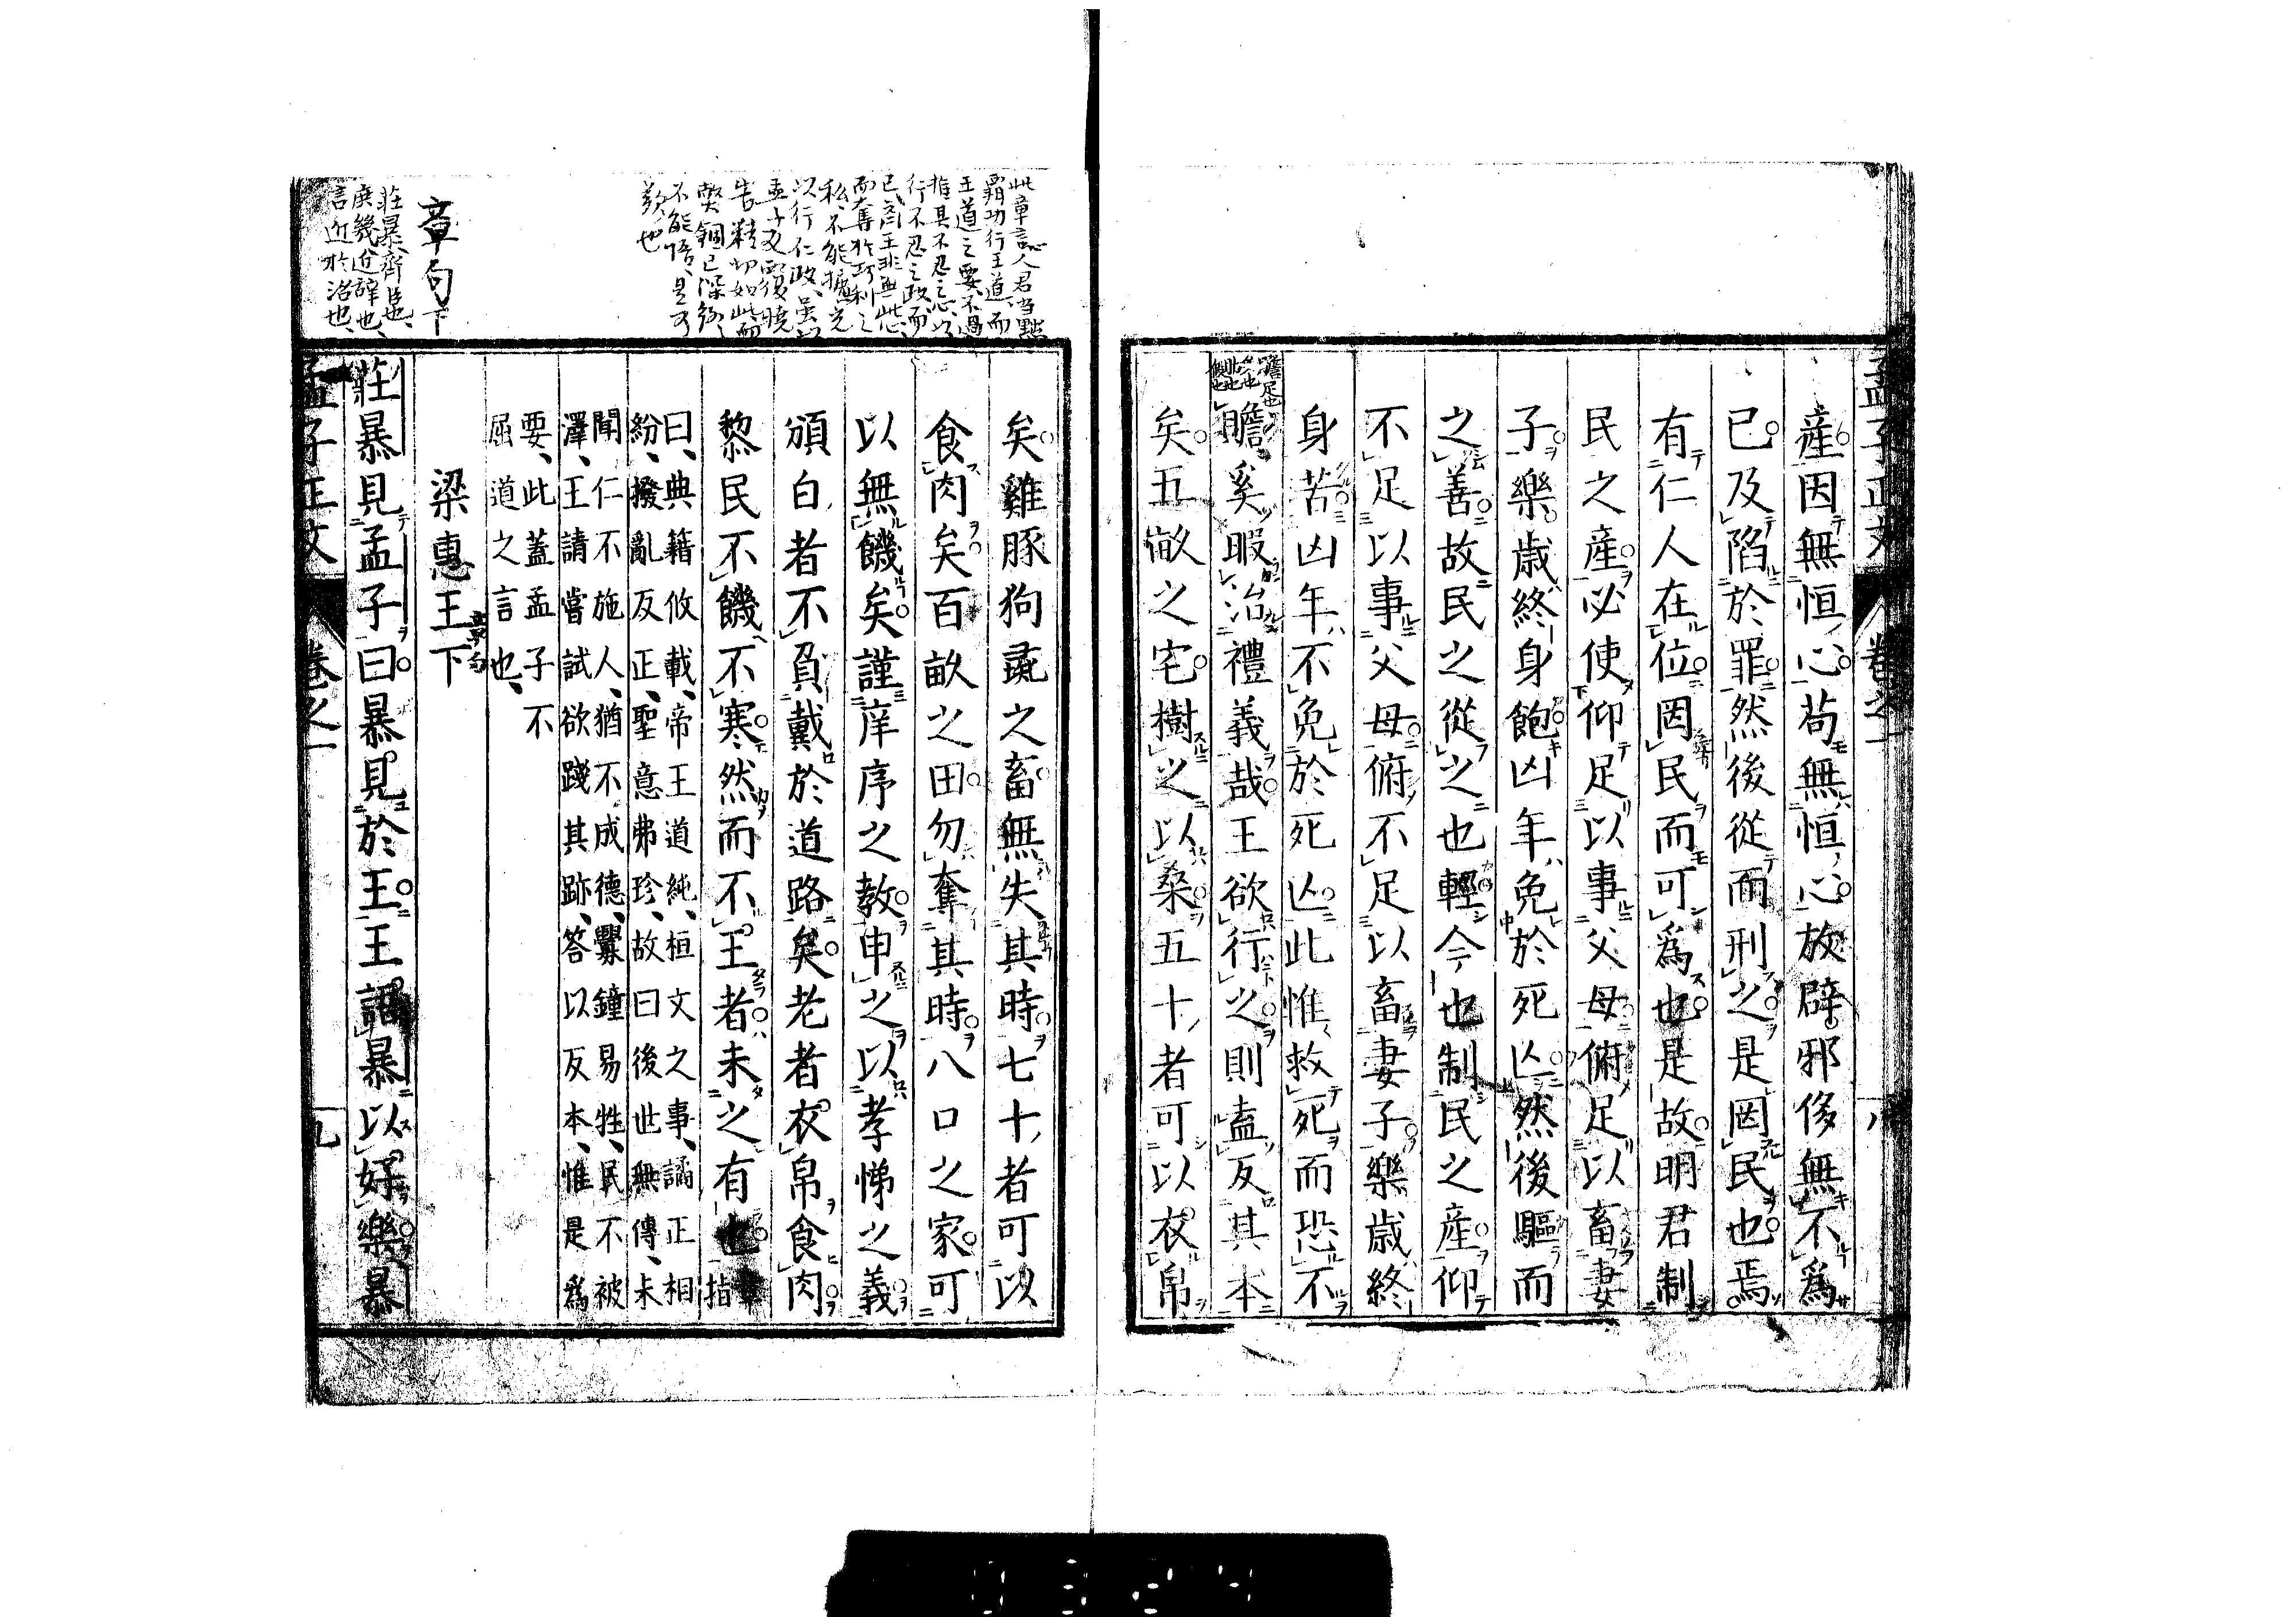 孟子正文 卷之一 八
産因無恒心苟無恒心放辟邪侈無不爲
已及陷於罪然後從而刑之是罔民也焉
有仁人在位罔民而可爲也是故明君制
民之産必使仰足以事父母俯足以畜妻
子樂歳終身飽凶年免於死亾然後驅而
之善故民之從之也輕今也制民之産仰
不足以事父母俯不足以畜妻子樂歳終
身苦凶年不免於死亾此惟救死而恐不
贍奚暇治禮義哉王欲行之則盍反其本
矣五畝之宅樹之以桑五十者可以衣帛
矣雞豚狗彘之畜無失其時七十者可以
食肉矣百畝之田勿奪其時八口之家可
以無饑矣謹庠序之教申之以孝悌之義
頒白者不負戴於道路矣老者衣帛食肉
黎民不饑不寒然而不王者未之有也章指
曰、典籍攸載、帝王道純、桓文之事、譎正相
紛、撥亂反正、聖意弗珍、故曰後世無傳、未
聞仁不施人、猶不成德、釁鐘易牲、民不被
澤、王請嘗試欲踐其跡、答以反本、惟是爲
要、此蓋孟子不
屈道之言也、
梁惠王章句下
莊暴見孟子曰暴見於王王語暴以好樂暴
孟子正文 卷之一 九
此章言人君当黜
覇功行王道、而
王道之要、不過
推其不忍之心、以
行不忍之政、而
已、齊王非無此心、
而奪於功利之
私、不能擴充
以行仁政、虽以
孟子反覆曉
告精切如此、而
不能悟、是可
歎也
章句下
莊暴齊臣也、
庶幾近辞也、
言近於治也、